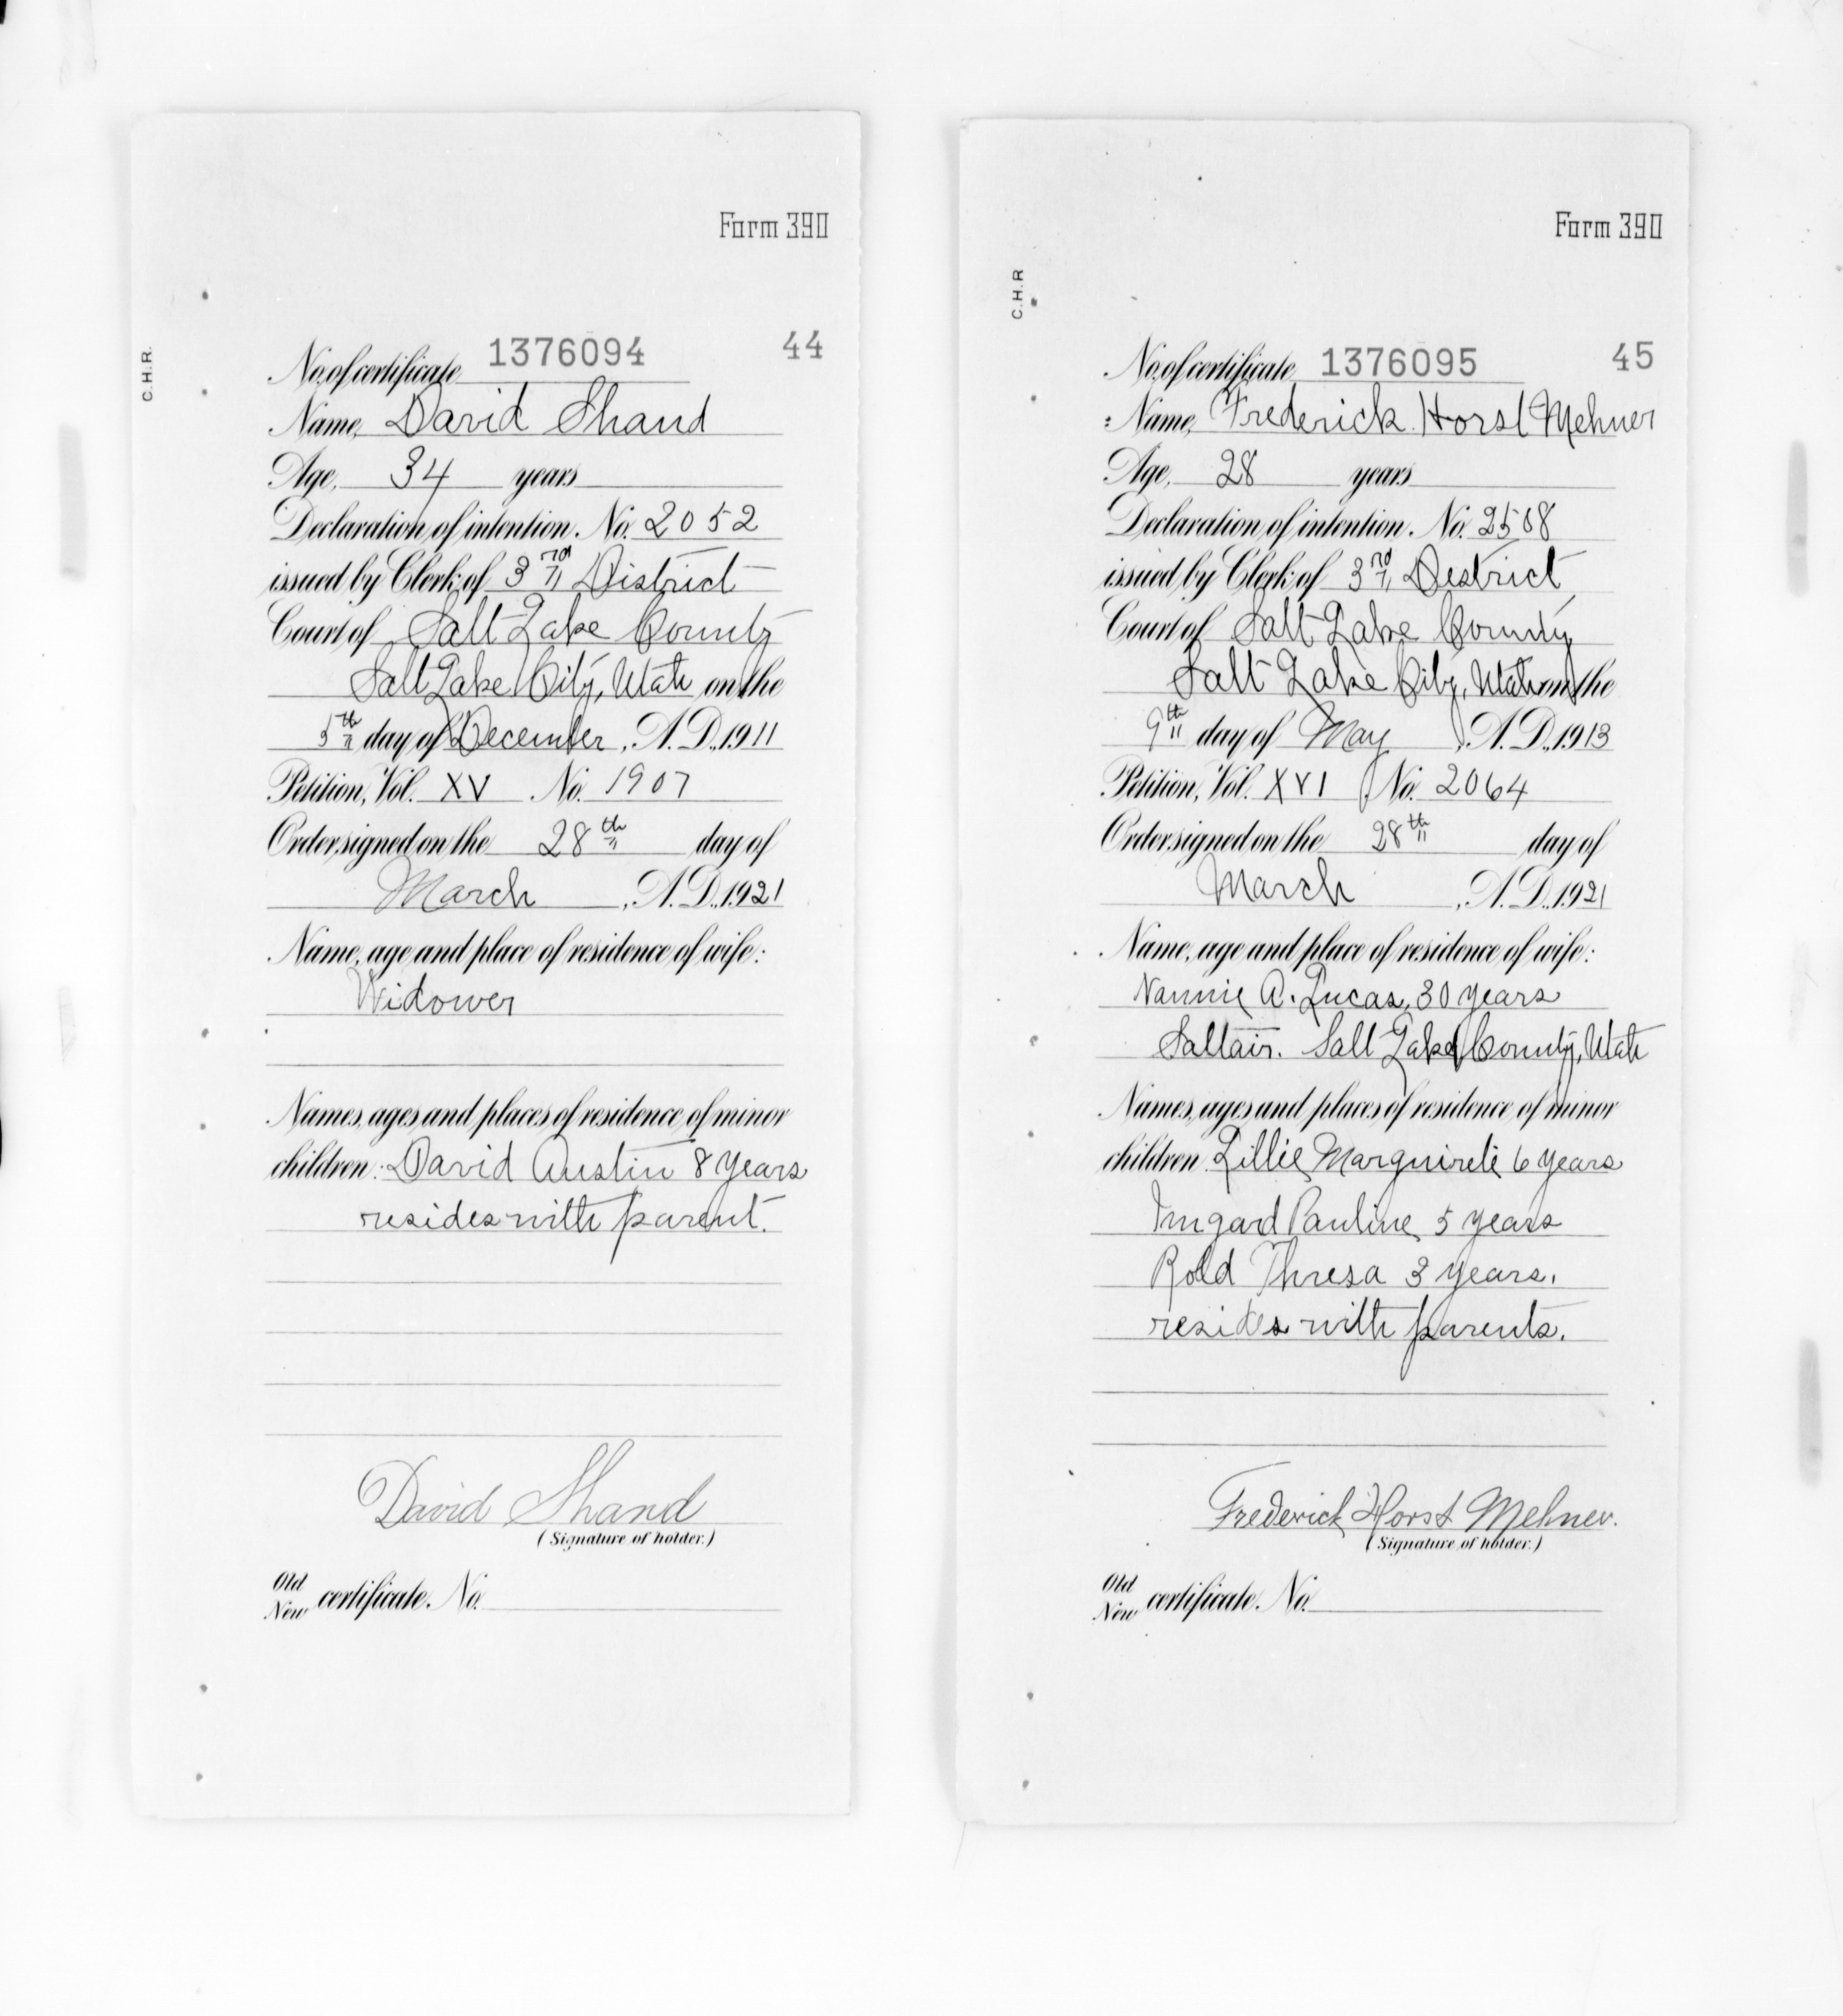 Form 390
C.H.R.
No. of certificate 1376094 44
Name, David Shand
Age, 34 years
Declaration of intention, No. 2052
issued by Clerk of 3rd District
Court of Salt Lake County
Salt Lake City, Utah on the
5th day of December, A.D., 1911
Petition, Vol. XV No. 1907
Order signed on the 28th day of
March, A.D., 1921
Name, age and place of residence of wife:
Widower
Names, ages and places of residence of minor
children: David Austin 8 years
resides with parent.
David Shand
(Signature of holder.)
Old
New certificate, No.
Form 390
C.H.R
No. of certificate 1376095 45
Name, Frederick Horst Mehner
Age, 28 years
Declaration of intention, No. 2508
issued by Clerk of 3rd District
Court of Salt Lake County
Salt Lake City, Utah on the
9th day of May, A.D., 1913
Petition, Vol. XVI No. 2064
Order signed on the 28th day of
March, A.D., 1921
Name, age and place of residence of wife:
Nannie A. Lucas, 30 years
Saltair. Salt Lake County, Utah
Names, ages and places of residence of minor
children Lillie 6 years
Pauline 5 years
Thresa 3 years.
resides with parents.
Frederick Horst Mehner.
(Signature of holder.)
Old
New certificate, No.